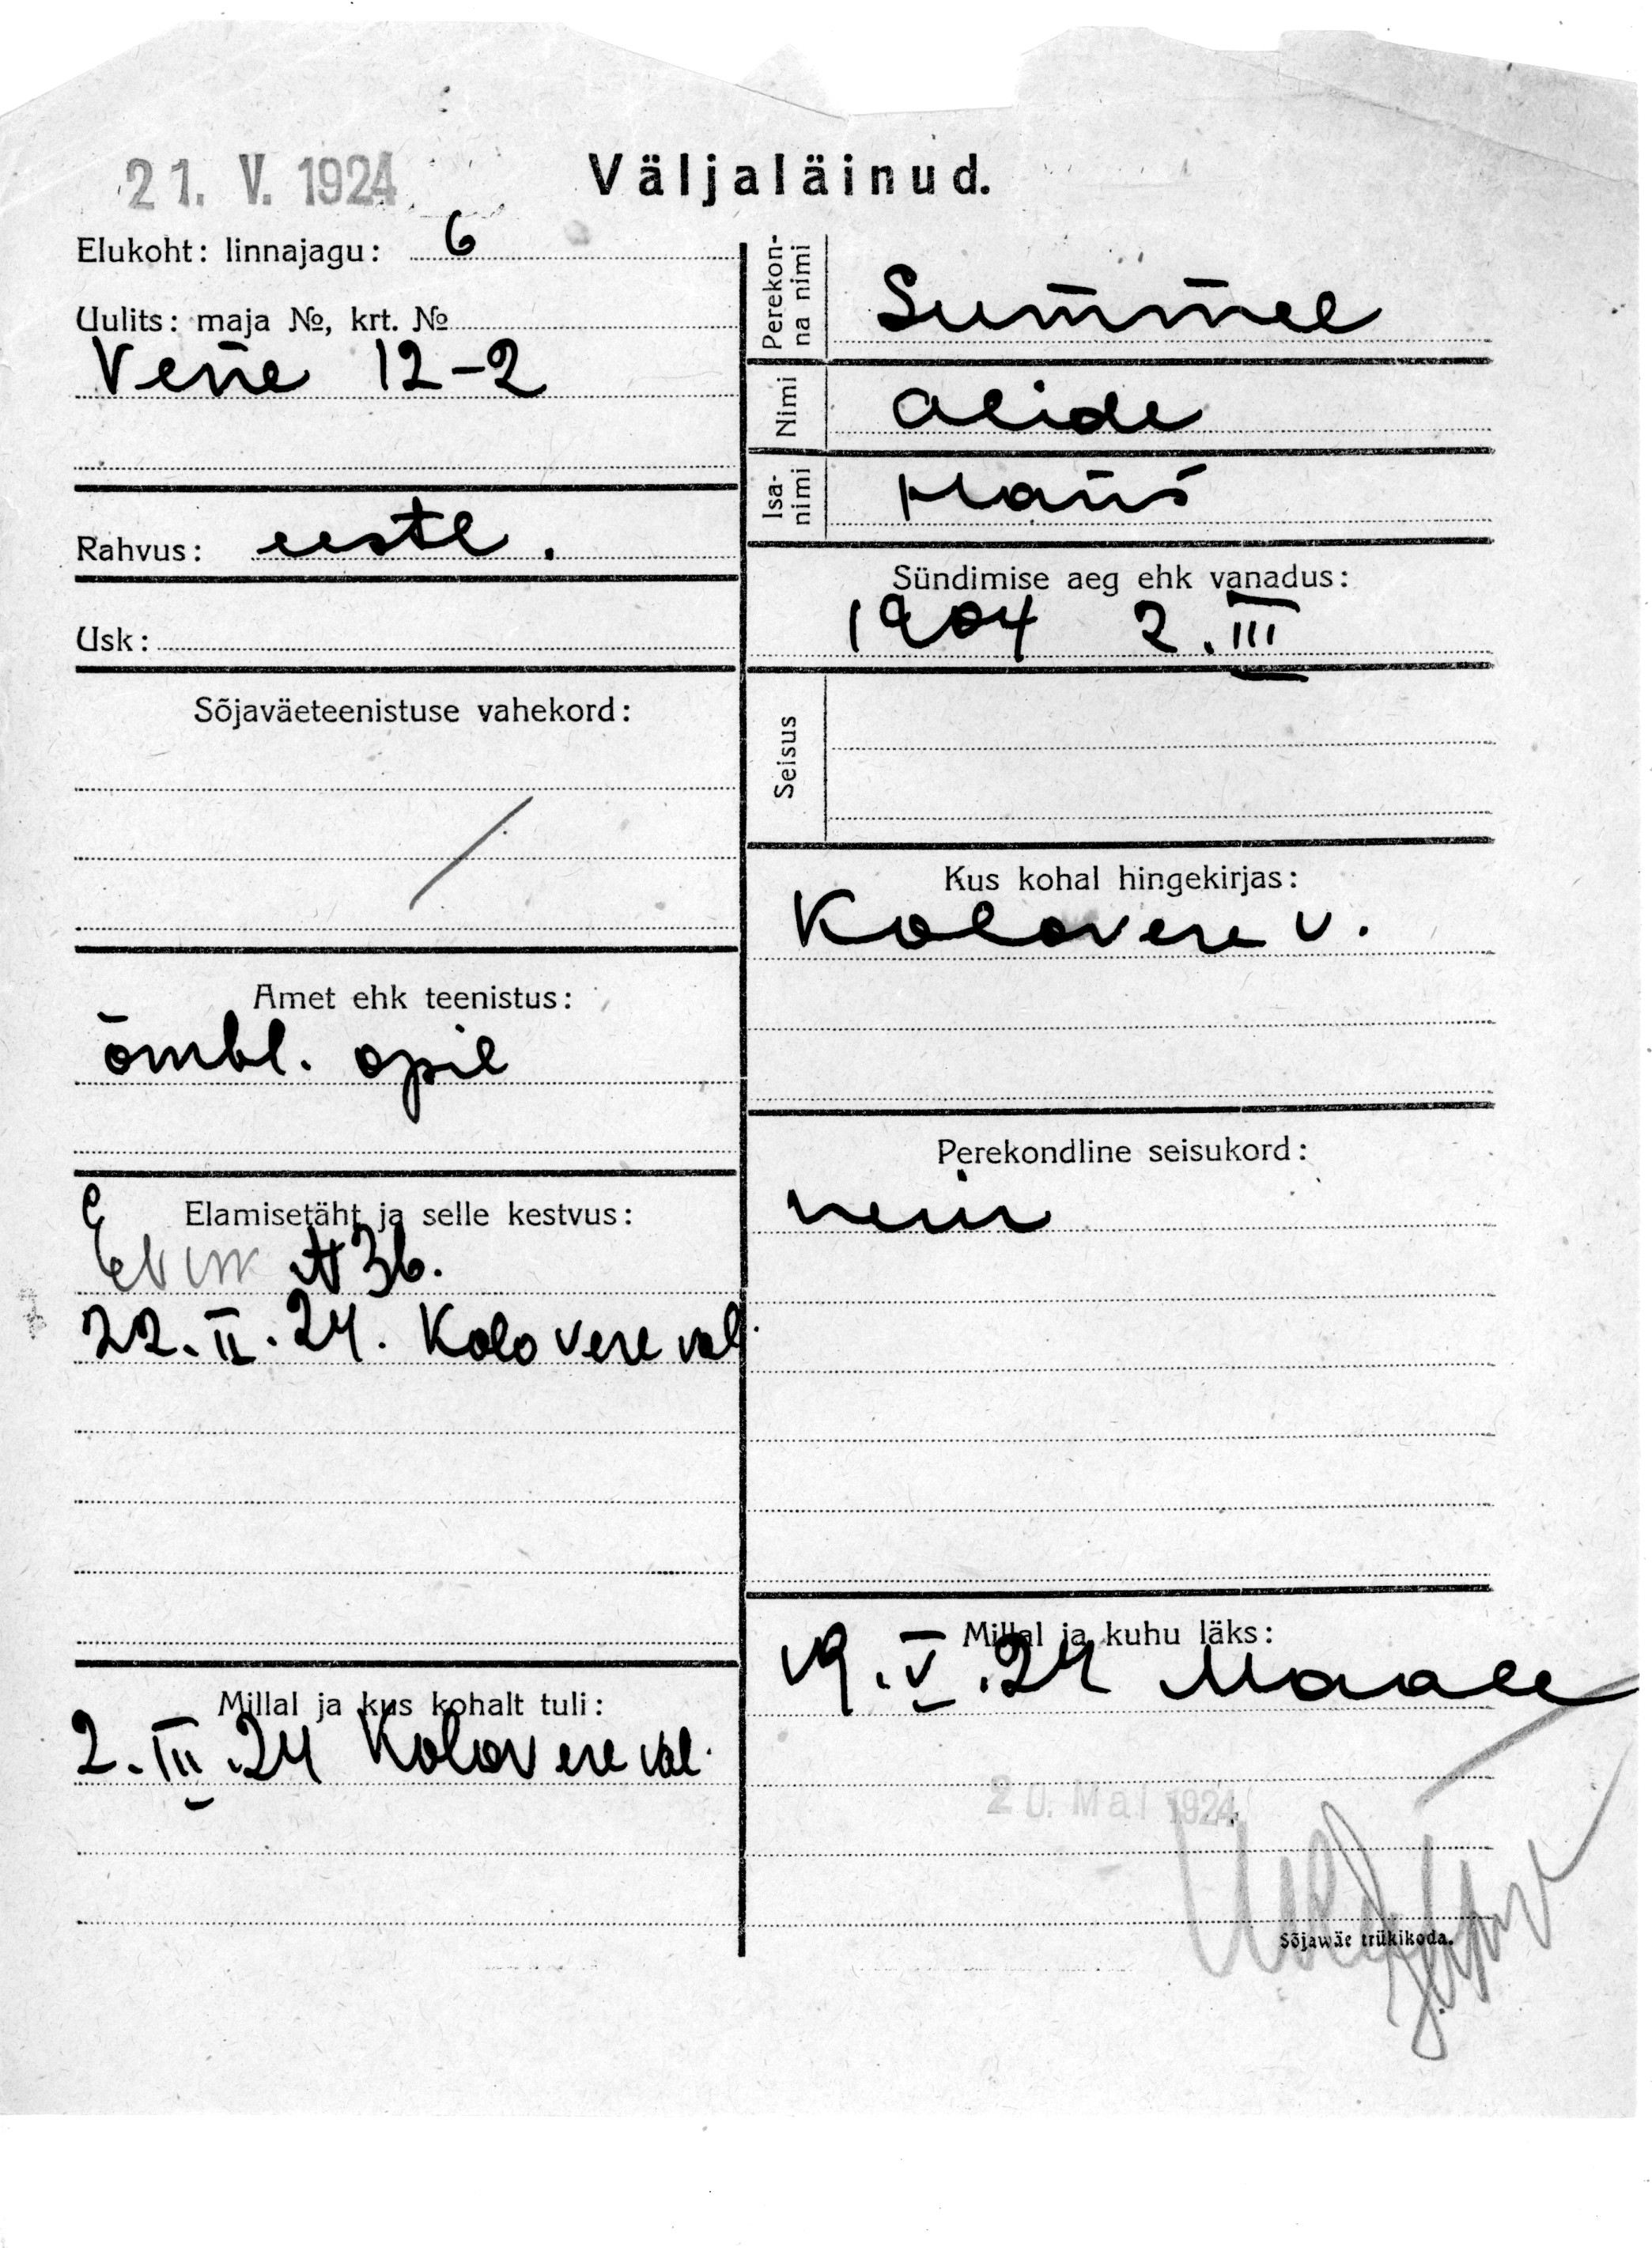 21. V. 1924
Väljaläinud.
Elukoht: linnajagu: 6
Uulits: maja №, krt. №
Vene 12-2
Rahvus: eestl.
Usk:
Sõjaväeteenistuse vahekord:
Amet ehk teenistus:
õmbl. opil
Elamisetäht ja selle kestvus:
N 36.
22. II. 24. Kolovere val.
Millal ja kus kohalt tuli:
2. III. 24 Kolovere val.
Perekonna nimi
Summel
Nimi
Alide
Isanimi
Hans
Sündimise aeg ehk vanadus:
1904 2. III
Seisus
Kus kohal hingekirjas:
Kolovere v.
Perekondline seisukord:
neiu
Millal ja kuhu läks:
19. V. 24 Maale
20. Mai 1924
Sõjawäe trükikoda.